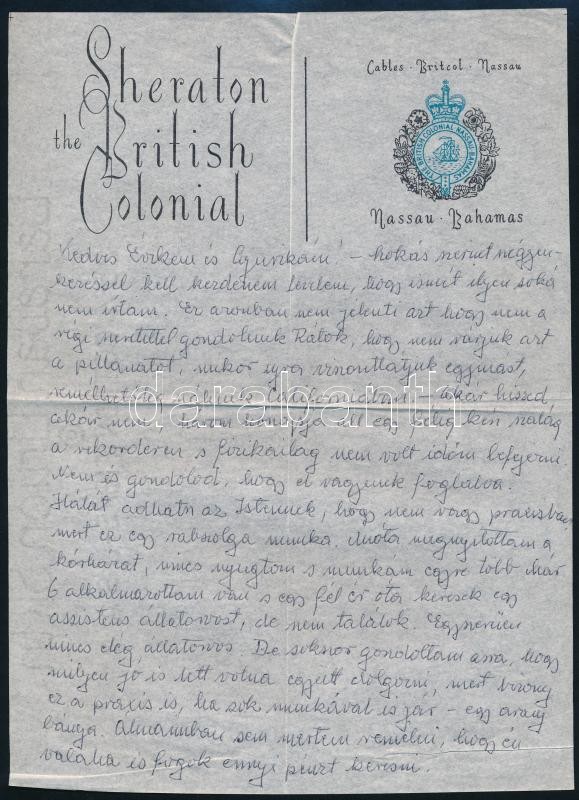 Sheraton
the British
Colonial
Cables · Britcol · Nassau
THE BRITISH COLONIAL NASSAU BAHAMAS
Nassau · Bahamas
Kedves Évikém és Gyurikám! – Szokás szerint
kéréssel kell kezdenem levelem, hogy ismét ilyen soká
nem írtam. Ez azonban nem jelenti azt hogy nem a
régi szeretettel gondolunk Rátok, hogy nem várjuk azt
a pillanatot, mikor újra viszontlátjuk egymást,
remélhetőleg nálunk Californiában – akár hiszed
akár nem – három hónapja áll egy félig kész szalag
a rekorderen s fizikailag nem volt időm befejezni.
Nem is gondolod, hogy el vagyunk foglalva.
Hálát adhatsz az Istennek, hogy nem vagy praxisban
mert ez egy rabszolga munka. Mióta megnyitottam a
kórházat, nincs nyugtom s munkám egyre több már
6 alkalmazottam van s egy fél év óta keresek egy
assistens állatorvost, de nem találok. Egyszerűen
nincs elég állatorvos. De sokszor gondoltam arra, hogy
milyen jó is lett volna együtt dolgozni, mert bizony
ez a praxis is, ha sok munkával is jár – egy arany
bánya. Álmomban sem mertem remélni, hogy én
valaha is fogok ennyi pénzt keresni.
darabanth